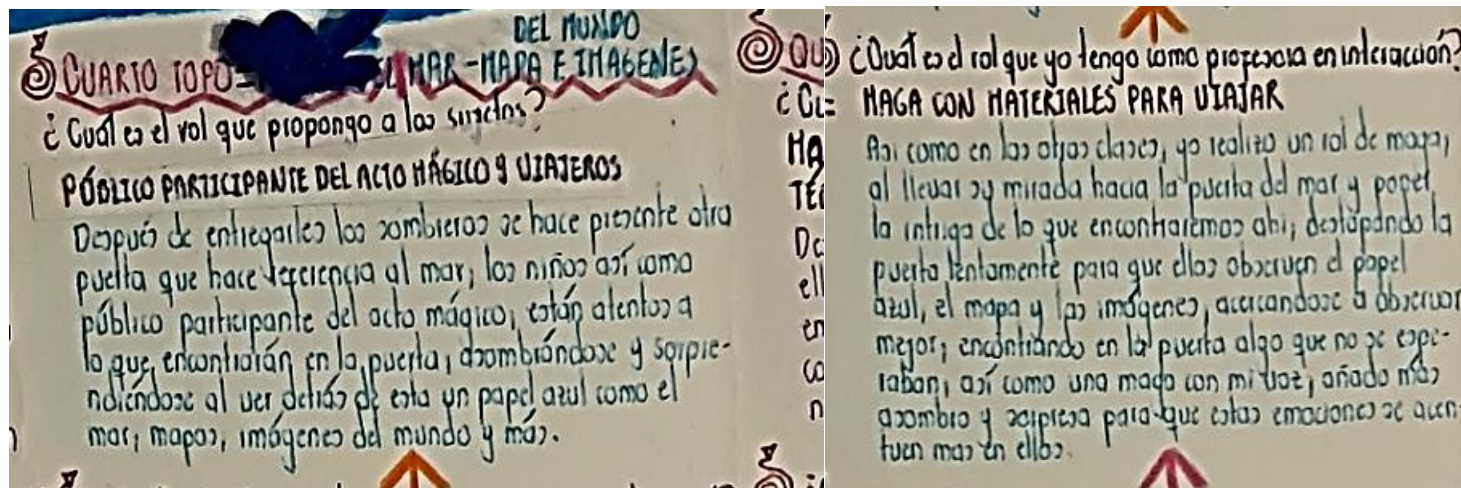 DEL MUNDO
CUARTO TOPO= EL MAR-MAPA E IMAGENES
¿Cuál es el rol que propongo a los sujetos?
PÚBLICO PARTICIPANTE DEL ACTO MÁGICO y VIAJEROS
Después de entregarles los sombreros se hace presente otra
puerta que hace referencia al mar, los niños así como
público participante del acto mágico, están atentos a
lo que encontrarán en la puerta, asombrándose y sorpre-
ndiéndose al ver detrás de esta un papel azul como el
mar, mapas, imágenes del mundo y más.
¿Cuál es el rol que yo tengo como profesora en interacción?
MAGA CON MATERIALES PARA VIAJAR
Asi como en las otras clases, yo realizo un rol de maga,
al llevar su mirada hacia la puerta del mar y poner
la intriga de lo que encontraremos ahi, destapando la
puerta lentamente para que ellos observen el papel
azul, el mapa y las imágenes, acercandose a observar
mejor, encontrando en la puerta algo que no se espe-
raban, así como una maga con mi voz, añado más
asombro y sorpresa para que estas emociones se acen-
tuen mas en ellos.